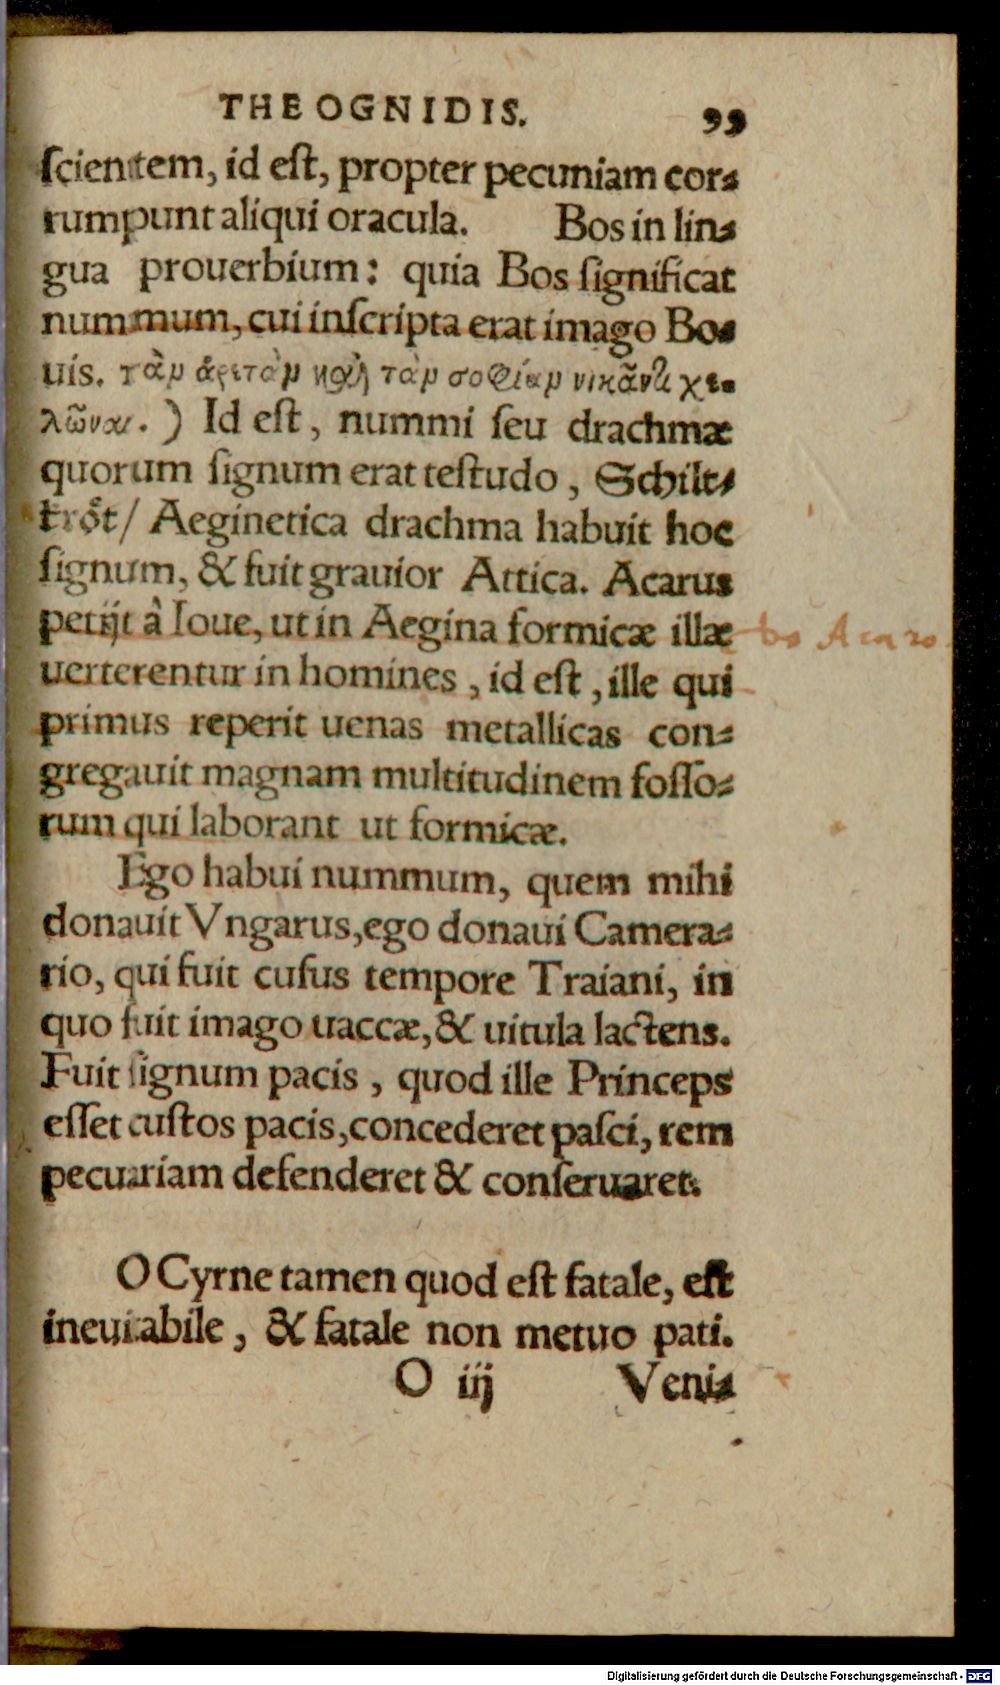 THEOGNIDIS. 99
scientem, id est, propter pecuniam cor-
rumpunt aliqui oracula. Bos in lin-
gua prouerbium: quia Bos significat
nummum, cui inscripta erat imago Bo-
uis. τὰν ἀρετὰν καὶ τὰν σοφίαν νικᾶντι χε-
λῶναι.) Id est, nummi seu drachmæ
quorum signum erat testudo, Schilt-
krôt/ Aeginetica drachma habuit hoc
signum, & fuit grauior Attica. Acarus
petijt à Ioue, ut in Aegina formicæ illæ
uerterentur in homines, id est, ille qui
primus reperit uenas metallicas con-
gregauit magnam multitudinem fosso-
rum qui laborant ut formicæ.
Ego habui nummum, quem mihi
donauit Vngarus, ego donaui Camera-
rio, qui fuit cusus tempore Traiani, in
quo fuit imago uaccæ, & uitula lactens.
Fuit signum pacis, quod ille Princeps
esset custos pacis, concederet pasci, rem
pecuariam defenderet & conseruaret.
O Cyrne tamen quod est fatale, est
ineuitabile, & fatale non metuo pati.
O iij Veni-
Acaro
Digitalisierung gefördert durch die Deutsche Forschungsgemeinschaft - DFG